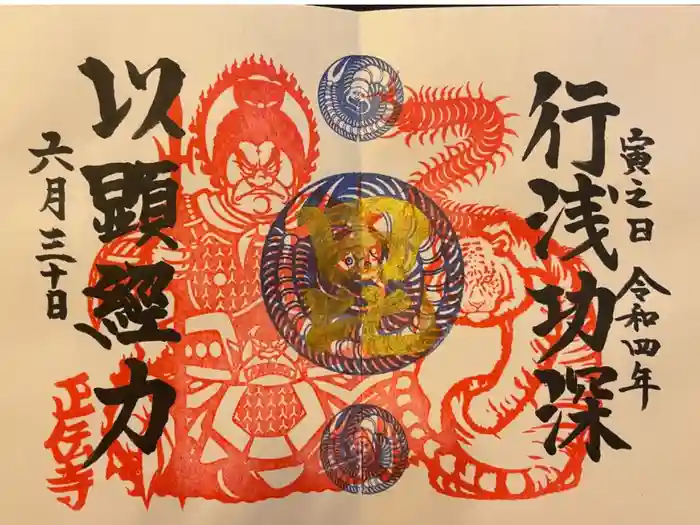 寅之日
令和四年
行浅功深
以顕經力
六月三十日
正伝寺